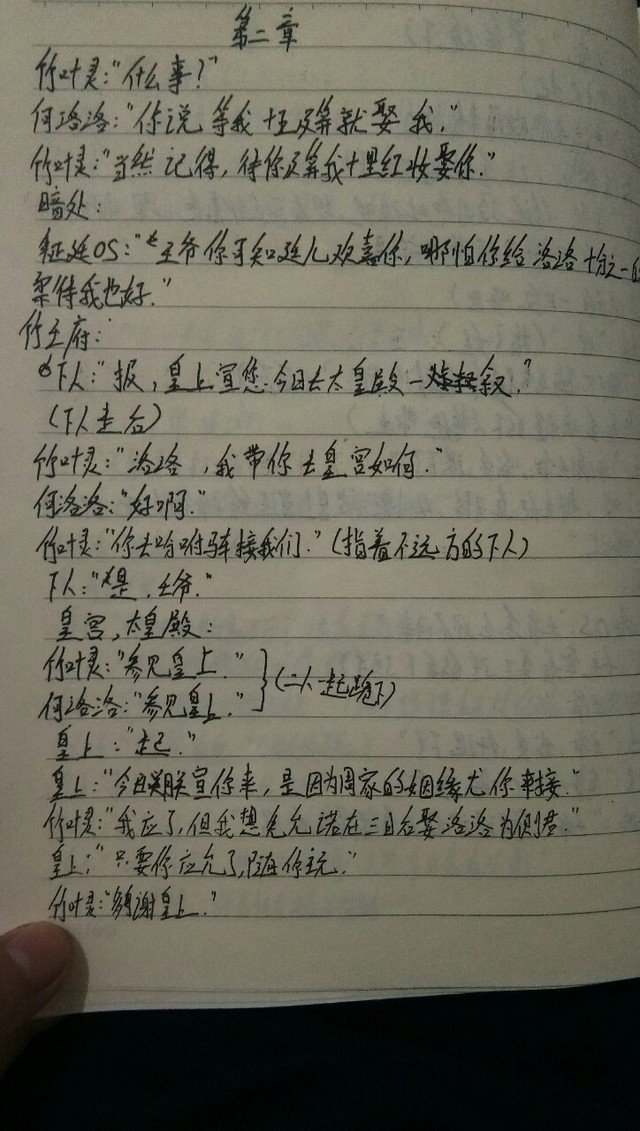 第二章
竹叶灵:“什么事?”
何洛洛:“你说等我十五及笄就娶我.”
竹叶灵:“当然记得,待你及笄我十里红妆娶你.”
暗处:
延OS:“王爷你可知延儿欢喜你,哪怕你给洛洛十分之一的
案待我也好.”
竹王府:
下人:“报,皇上宣您今日去太皇殿一叙.”
(下人走后)
竹叶灵:“洛洛,我带你去皇宫如何.”
何洛洛:“好啊.”
竹叶灵:“你去吩咐马车接我们.”(指着不远方的下人)
下人:“是,王爷.”
皇宫,太皇殿:
竹叶灵:“参见皇上.”
何洛洛:“参见皇上.”(二人一起跪下)
皇上:“起.”
皇上:“今日朕宣你来,是因为周家的姻缘尤你来接.”
竹叶灵:“我应了,但我想先允诺在三日后娶洛洛为侧君.”
皇上:“只要你应允了,随你玩.”
竹叶灵:“多谢皇上.”